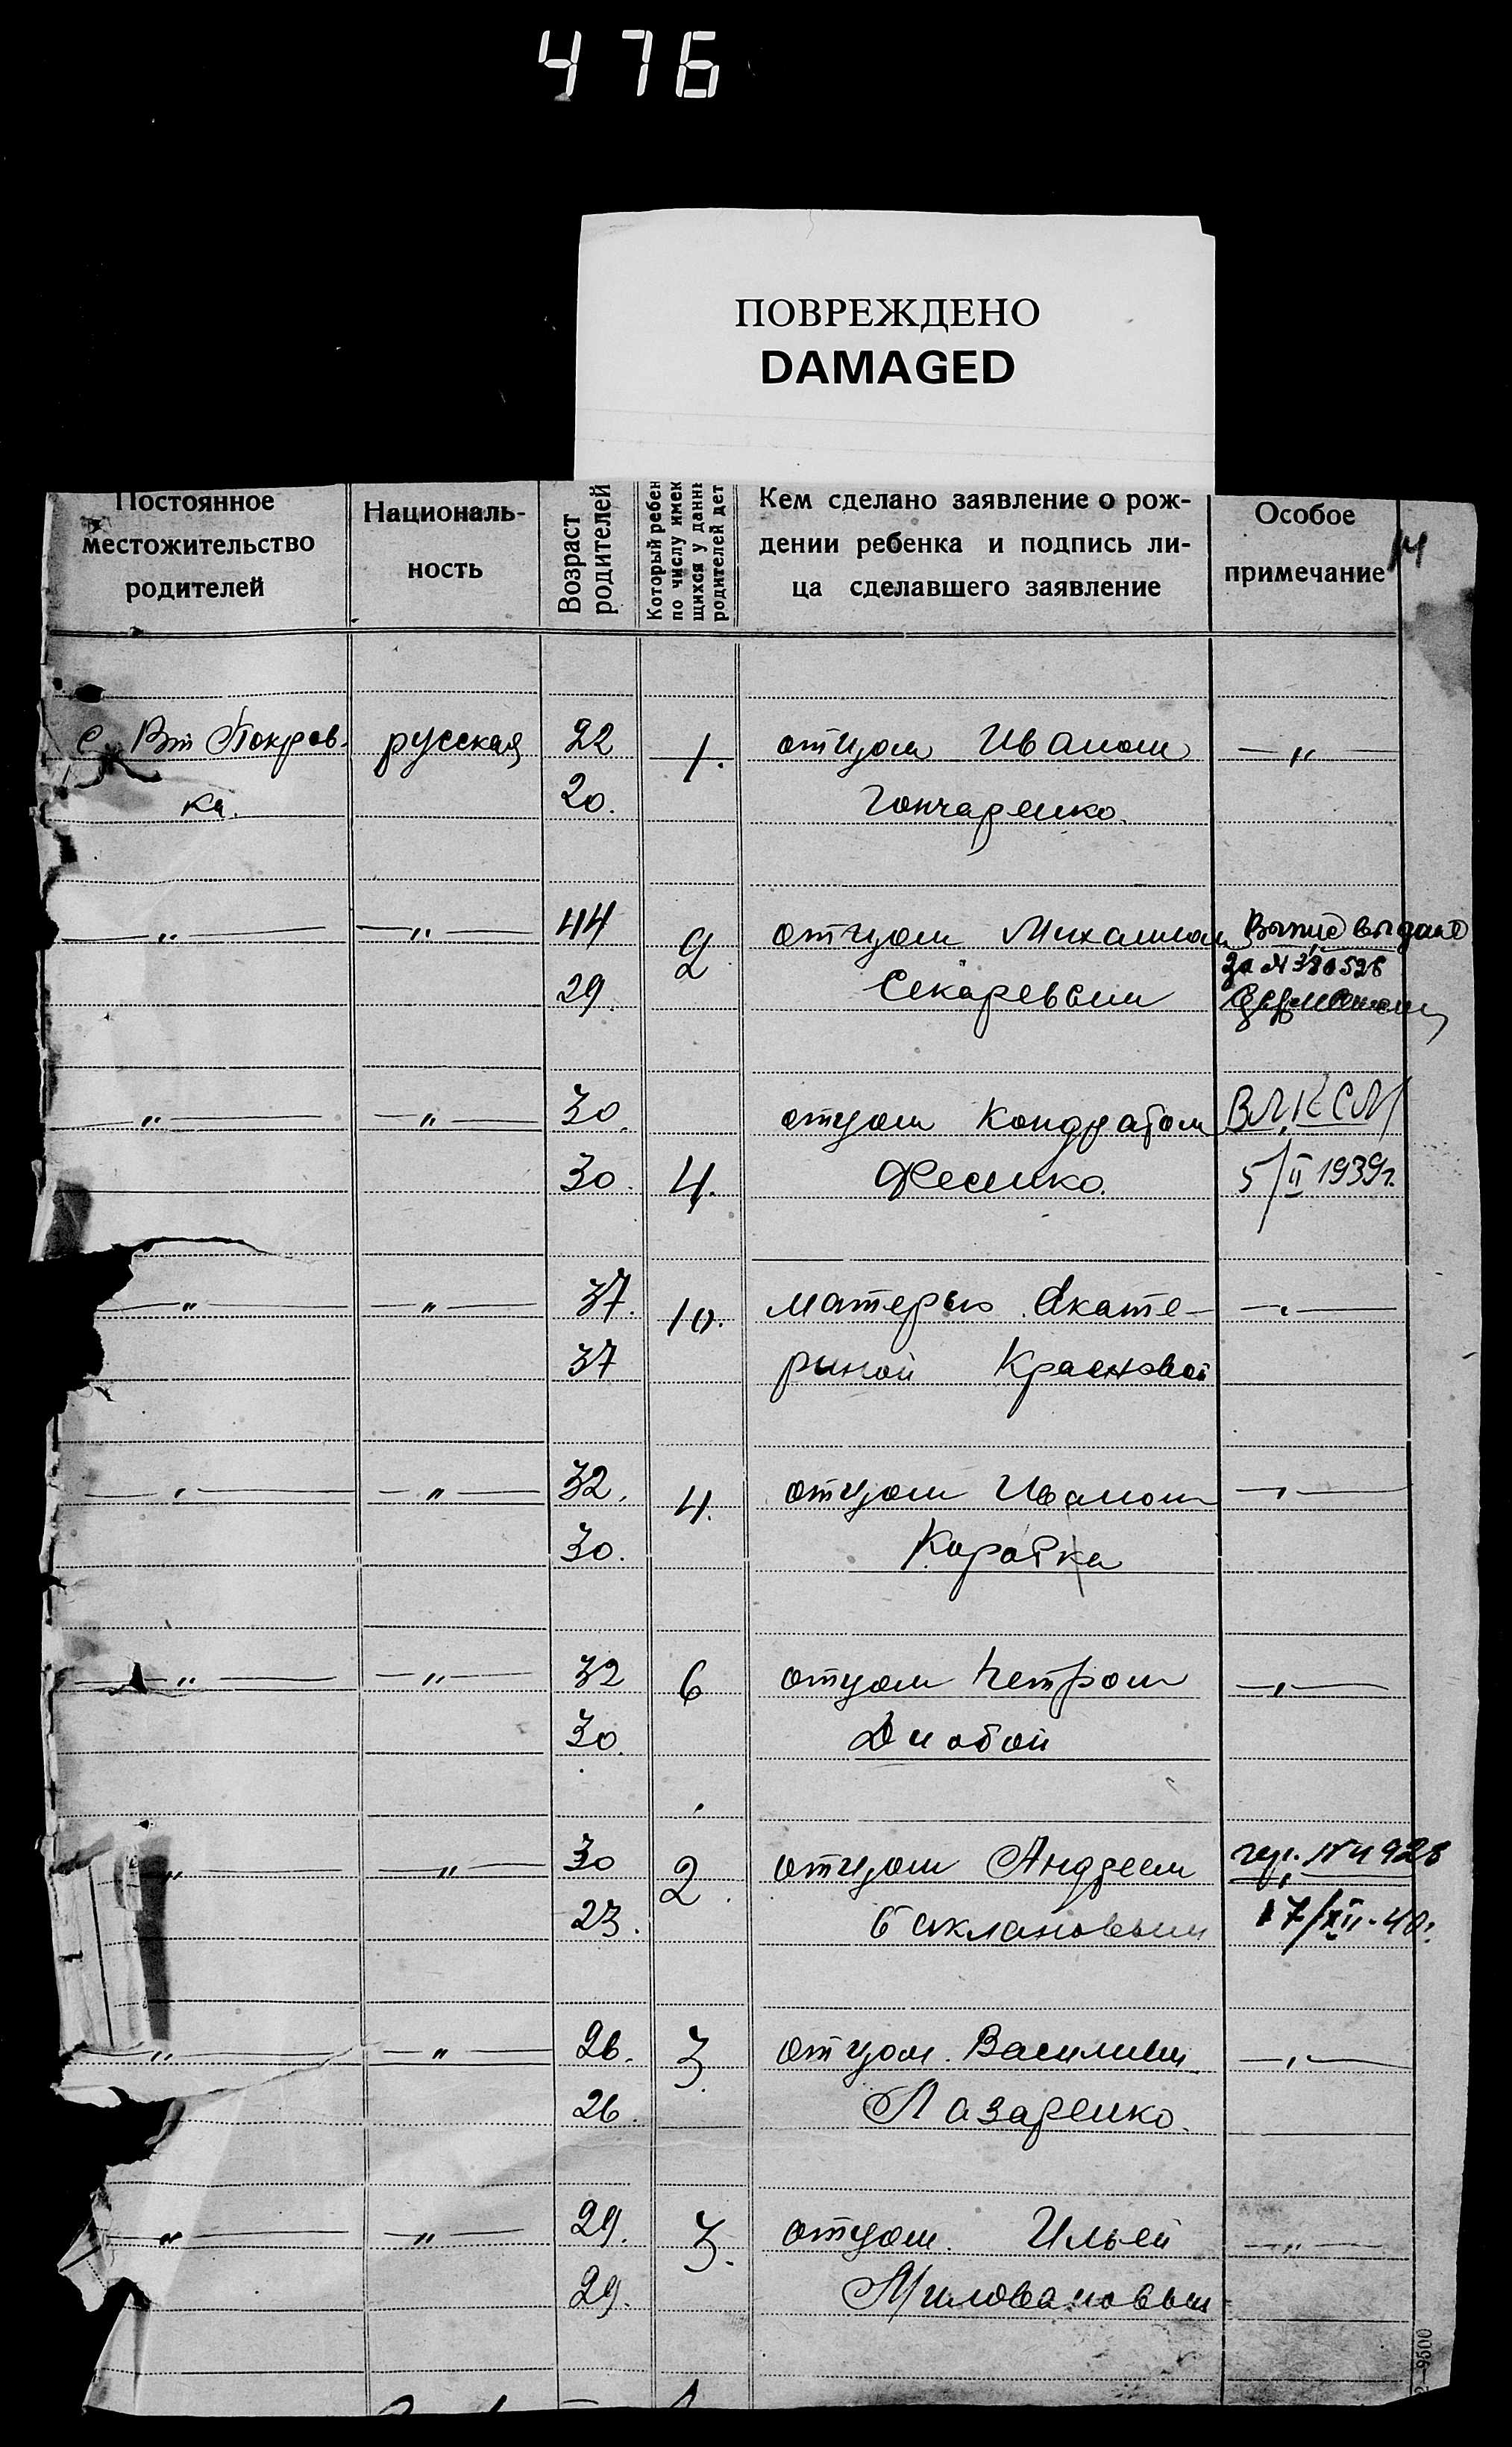 476
ПОВРЕЖДЕНО
DAMAGED
Постоянное местожительство родителей
Националь-ность
Возраст родителей
Который ребен по числу имек щихся у данны родителей дет
Кем сделано заявление о рож-
дении ребенка и подпись ли-
ца сделавшего заявление
Особое примечание
14
с Вт Покров- русская 22 1. отцом Иваном —„—
ка. 20. Гончаренко.
—„— —„— 44 2 отцом Михаилом Выпис выдано
за N 380528
29. Секаревым
—„— —„— 30. отцом Кондратом ВЛКСМ
30. 4. Фесенко. 5/II 1939г.
—„— —„— 37. 10. матерью Екате- —„—
37 риной Красновой
—„— —„— 32. 4. отцом Иваном —„—
30. Коротка
—„— —„— 32 6 отцом Петром —„—
30. Дзюбой
—„— —„— 30 2. отцом Андреем N 4928
23. Баклановым 17/XII-40г.
—„— —„— 26. 3. отцом Василием —„—
26. Лазаренко.
—„— —„— 29. 3. отцом Ильей —„—
29. Миловановым
2—9500